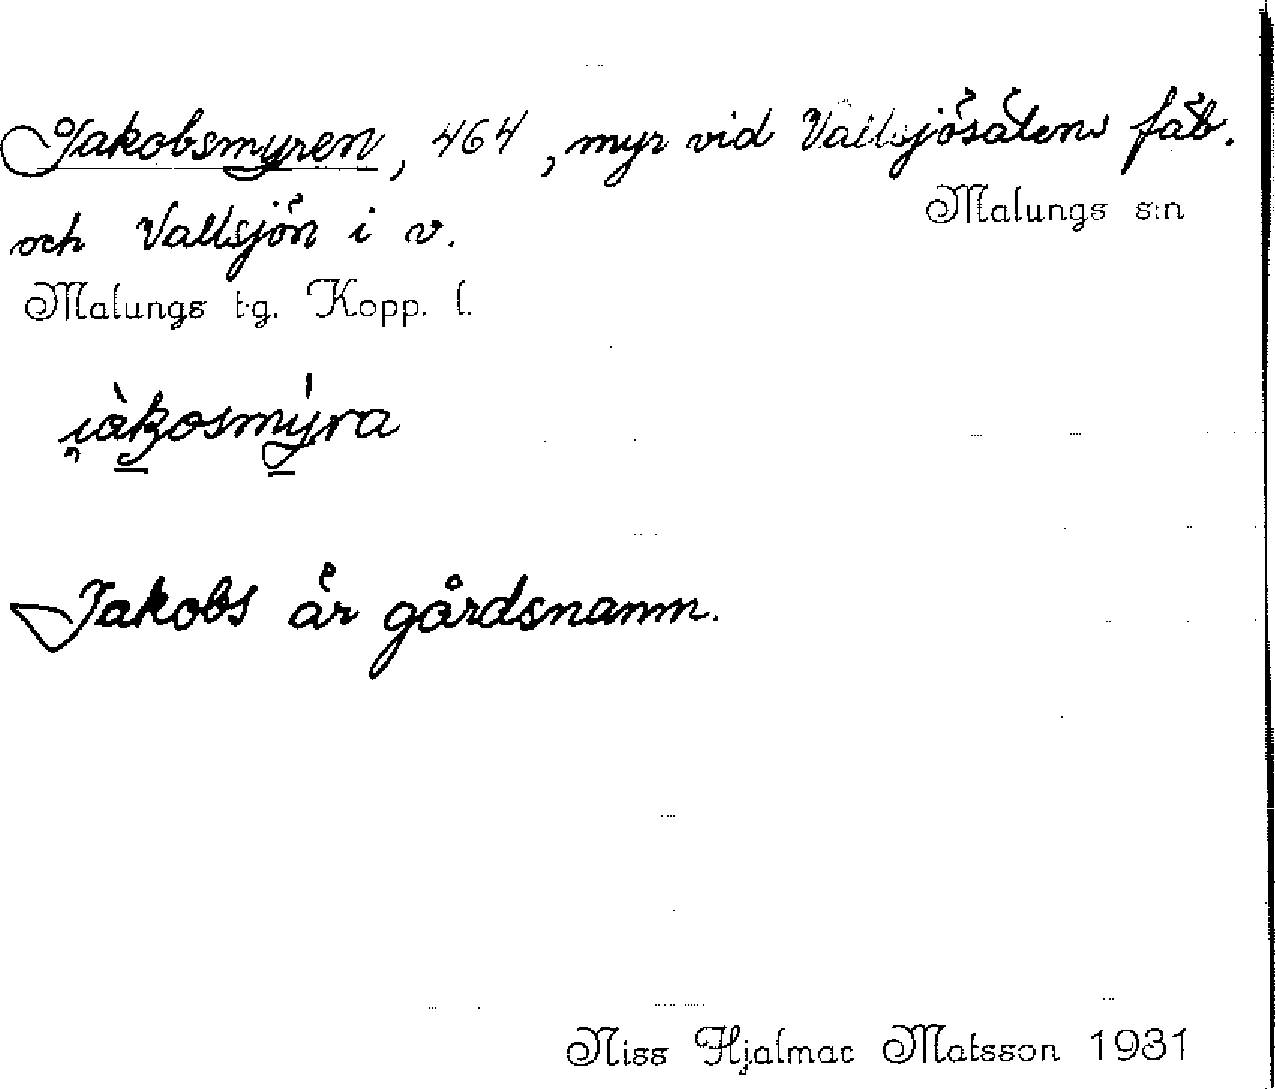 Jakobsmyren, 464, myr vid Vallsjösätens fäb.
Malungs s:n
och Vallsjön i v.
Malungs t·g. Kopp. l.
i̯àkosmýra
Jakobs är gårdsnamn.
Niss Hjalmar Matsson 1931